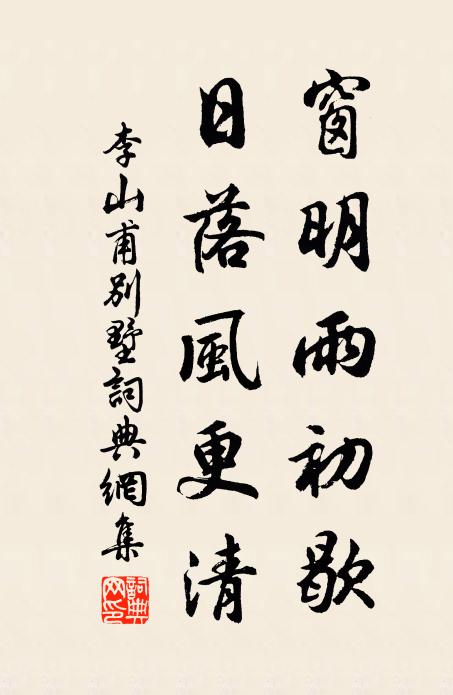 窗明雨初歇
日落風更清
李山甫別墅詞典網集
詞典
网印